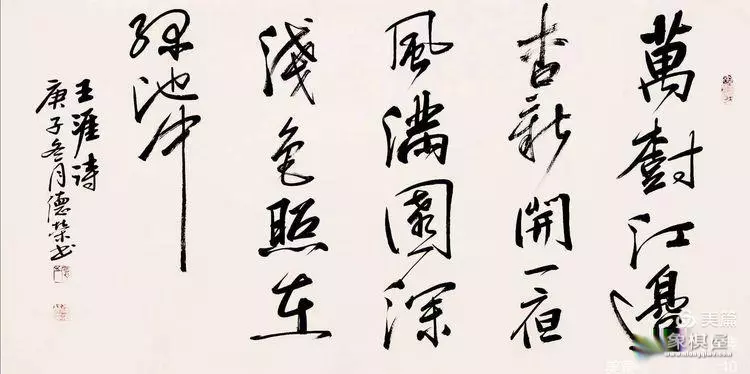 萬樹江邊
杏新開一宿
風滿園深
淺色照在
綠池中
王涯詩
庚子冬月德榮书
美篇
象棋屋